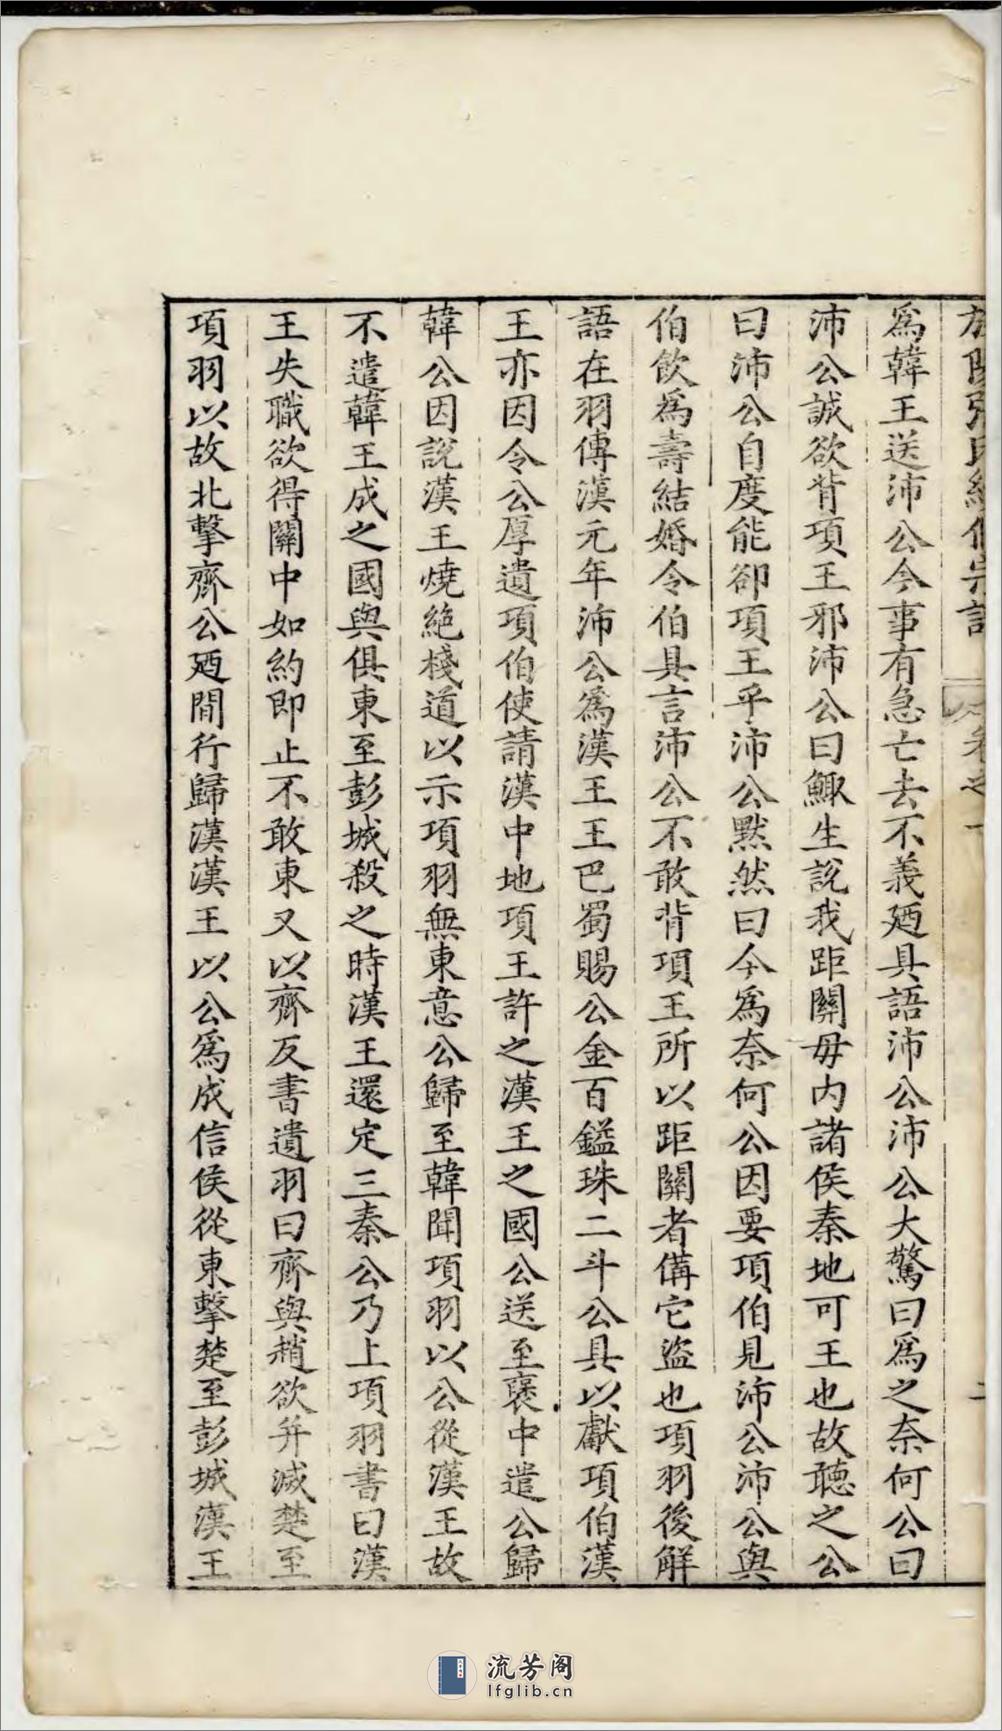 張氏統宗譜 卷之一 二
爲韓王送沛公今事有急亡去不義廼具語沛公沛公大驚曰爲之奈何公曰
沛公誠欲背項王邪沛公曰鯫生說我距關毋内諸侯秦地可王也故聽之公
曰沛公自度能卻項王乎沛公默然曰今爲奈何公因要項伯見沛公沛公與
伯飲爲壽結婚令伯具言沛公不敢背項王所以距關者備它盜也項羽後解
語在羽傳漢元年沛公爲漢王王巴蜀賜公金百鎰珠二斗公具以獻項伯漢
王亦因令公厚遺項伯使請漢中地項王許之漢王之國公送至襃中遣公歸
韓公因說漢王燒絕棧道以示項羽無東意公歸至韓聞項羽以公從漢王故
不遣韓王成之國與俱東至彭城殺之時漢王還定三秦公乃上項羽書曰漢
王失職欲得關中如約即止不敢東又以齊反書遺羽曰齊與趙欲并滅楚至
項羽以故北擊齊公廼間行歸漢漢王以公爲成信侯從東擊楚至彭城漢王
流芳阁
lfglib.cn